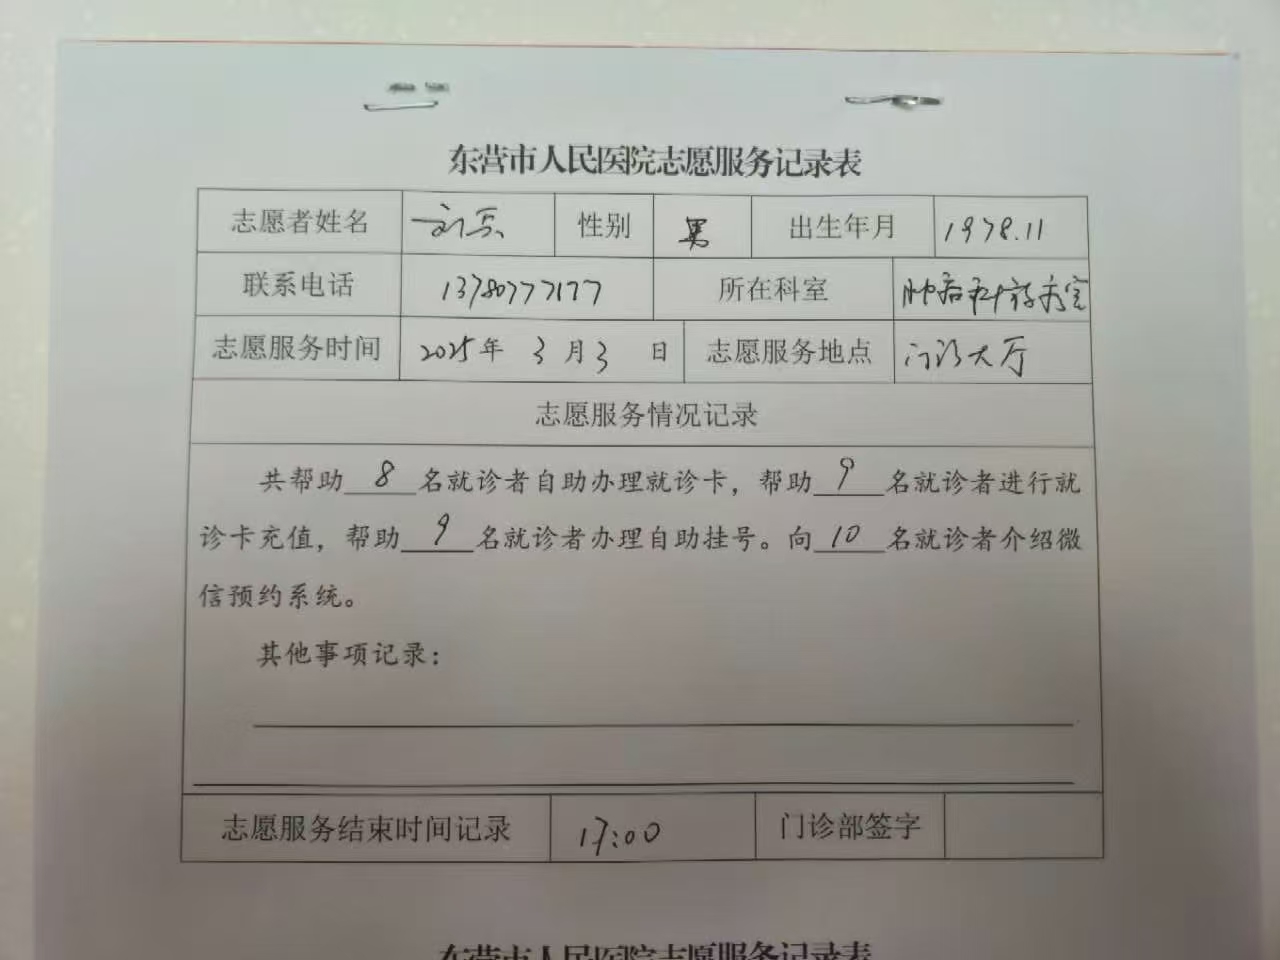 东营市人民医院志愿服务记录表
志愿者姓名 刘 性别 男 出生年月 1978.11
联系电话 13780777177 所在科室
志愿服务时间 2025年 3月3 日 志愿服务地点 门诊大厅
志愿服务情况记录
共帮助 8 名就诊者自助办理就诊卡，帮助 9 名就诊者进行就
诊卡充值，帮助 9 名就诊者办理自助挂号。向 10 名就诊者介绍微
信预约系统。
其他事项记录：
志愿服务结束时间记录 17:00 门诊部签字
东营市人民医院志愿服务记录表